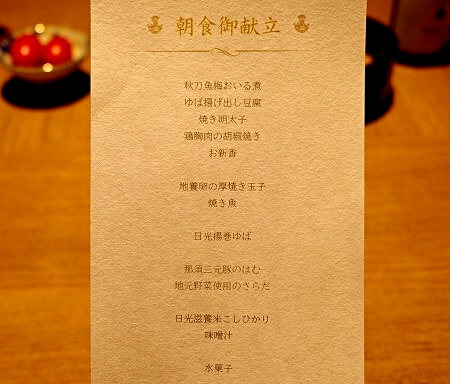 朝食御献立
秋刀魚梅おいる煮
ゆば揚げ出し豆腐
焼き明太子
鶏胸肉の胡椒焼き
お新香
地養卵の厚焼き玉子
焼き魚
日光揚巻ゆば
那須三元豚のはむ
地元野菜使用のさらだ
日光滋養米こしひかり
味噌汁
水菓子